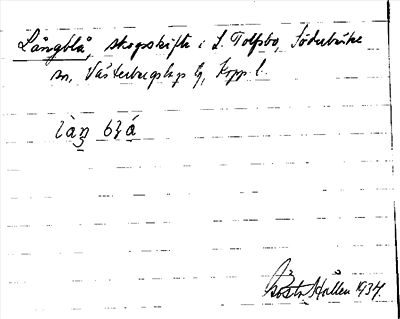 Långblå, skogsskifte i S. Tolfsbo, Söderbärke
sn, Västerbergslags tg, Kopp. l.
làŋ blá
Gösta Hallen 1934.